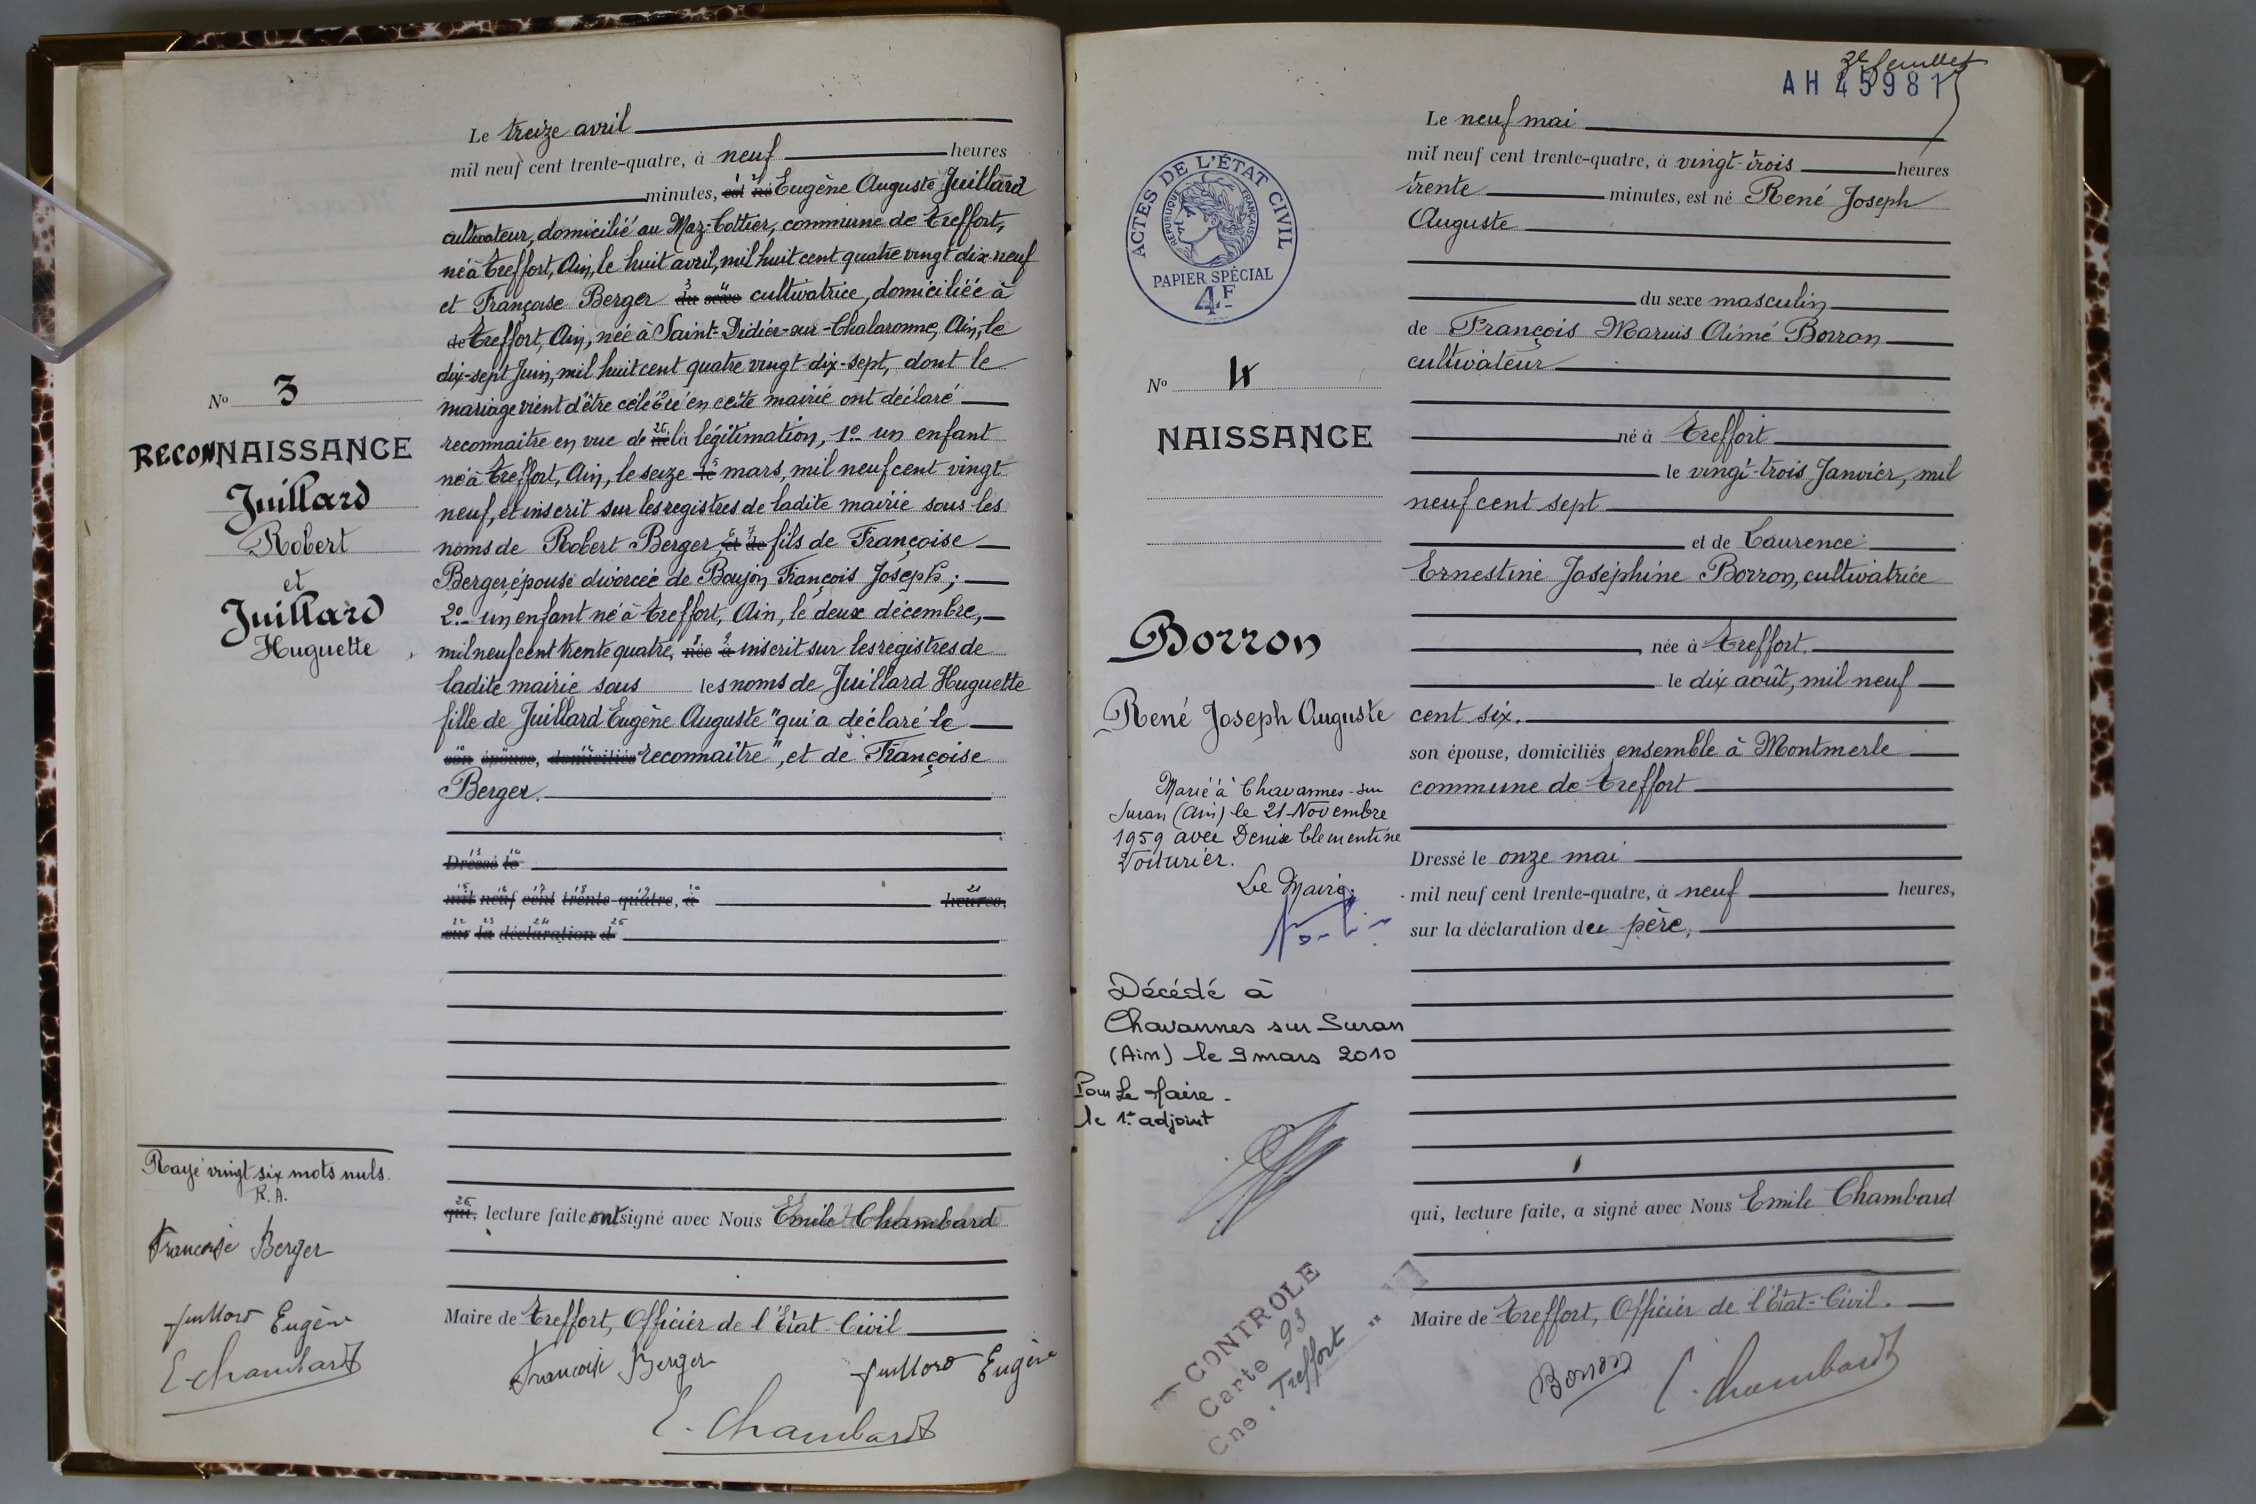 Le treize avril
mil neuf cent trente-quatre, à neuf heures
minutes, est né Eugène Auguste Juillard
cultivateur, domicilié au Maz-Cottier, commune de Treffort,
né à Treffort, Ain, le huit avril, mil huit cent quatre vingt dix neuf
et Françoise Berger du sexe cultivatrice, domiciliée à
de Treffort, Ain, née à Saint-Didier-sur-Chalaronne, Ain, le
dix-sept Juin, mil huit cent quatre vingt-dix-sept, dont le
mariage vient d'être célébré en cette mairie ont déclaré
reconnaitre en vue de né la légitimation, 1º un enfant
né à Treffort, Ain, le seize le mars, mil neuf cent vingt
neuf, et inscrit sur les registres de ladite mairie sous les
noms de Robert Berger, et de fils de Françoise
Berger, épouse divorcée de Boujon François Joseph;
2º un enfant né à Treffort, Ain, le deux décembre,
mil neuf cent trente quatre, née à inscrit sur les registres de
ladite mairie sous les noms de Juillard Huguette
fille de Juillard Eugène Auguste "qui a déclaré le
son épouse, domiciliés reconnaître", et de Françoise
Berger.
Dressé le
mil neuf cent trente-quatre, à heures,
sur la déclaration d
qui, lecture faite ont signé avec Nous Emile Chambard
Maire de Treffort, Officier de l'Etat-Civil
Françoise Berger Juillard Eugène
E. Chambard
Nº 3
RECONNAISSANCE
Juillard
Robert
et
Juillard
Huguette
Rayé vingt six mots nuls.
Françoise Berger
Juillard Eugène
E. Chambard
3e feuillet
AH 45981
Le neuf mai
mil neuf cent trente-quatre, à vingt-trois heures
trente minutes, est né René Joseph
Auguste
du sexe masculin
de François Marius Aimé Borron
cultivateur
né à Treffort
le vingt-trois Janvier, mil
neuf cent sept
et de Laurence
Ernestine Joséphine Borron, cultivatrice
née à Treffort.
le dix août, mil neuf
cent six.
son épouse, domiciliés ensemble à Montmerle
commune de Treffort
Dressé le onze mai
mil neuf cent trente-quatre, à neuf heures,
sur la déclaration du père,
qui, lecture faite, a signé avec Nous Emile Chambard
Maire de Treffort, Officier de l'Etat-Civil.
Borron E. Chambard
ACTES DE L'ÉTAT CIVIL
RÉPUBLIQUE FRANÇAISE
PAPIER SPÉCIAL
4F
Nº 4
NAISSANCE
Borron
René Joseph Auguste
Marié à Chavannes-sur
Suran (Ain) le 21 Novembre
1959 avec Denise Clementine
Voiturier.
Le Maire.
Décédé à
Chavannes sur Suran
(Ain) le 9 mars 2010
Pour Le Maire -
Le 1er adjoint
CONTROLE
Carte 93
Cne. Treffort